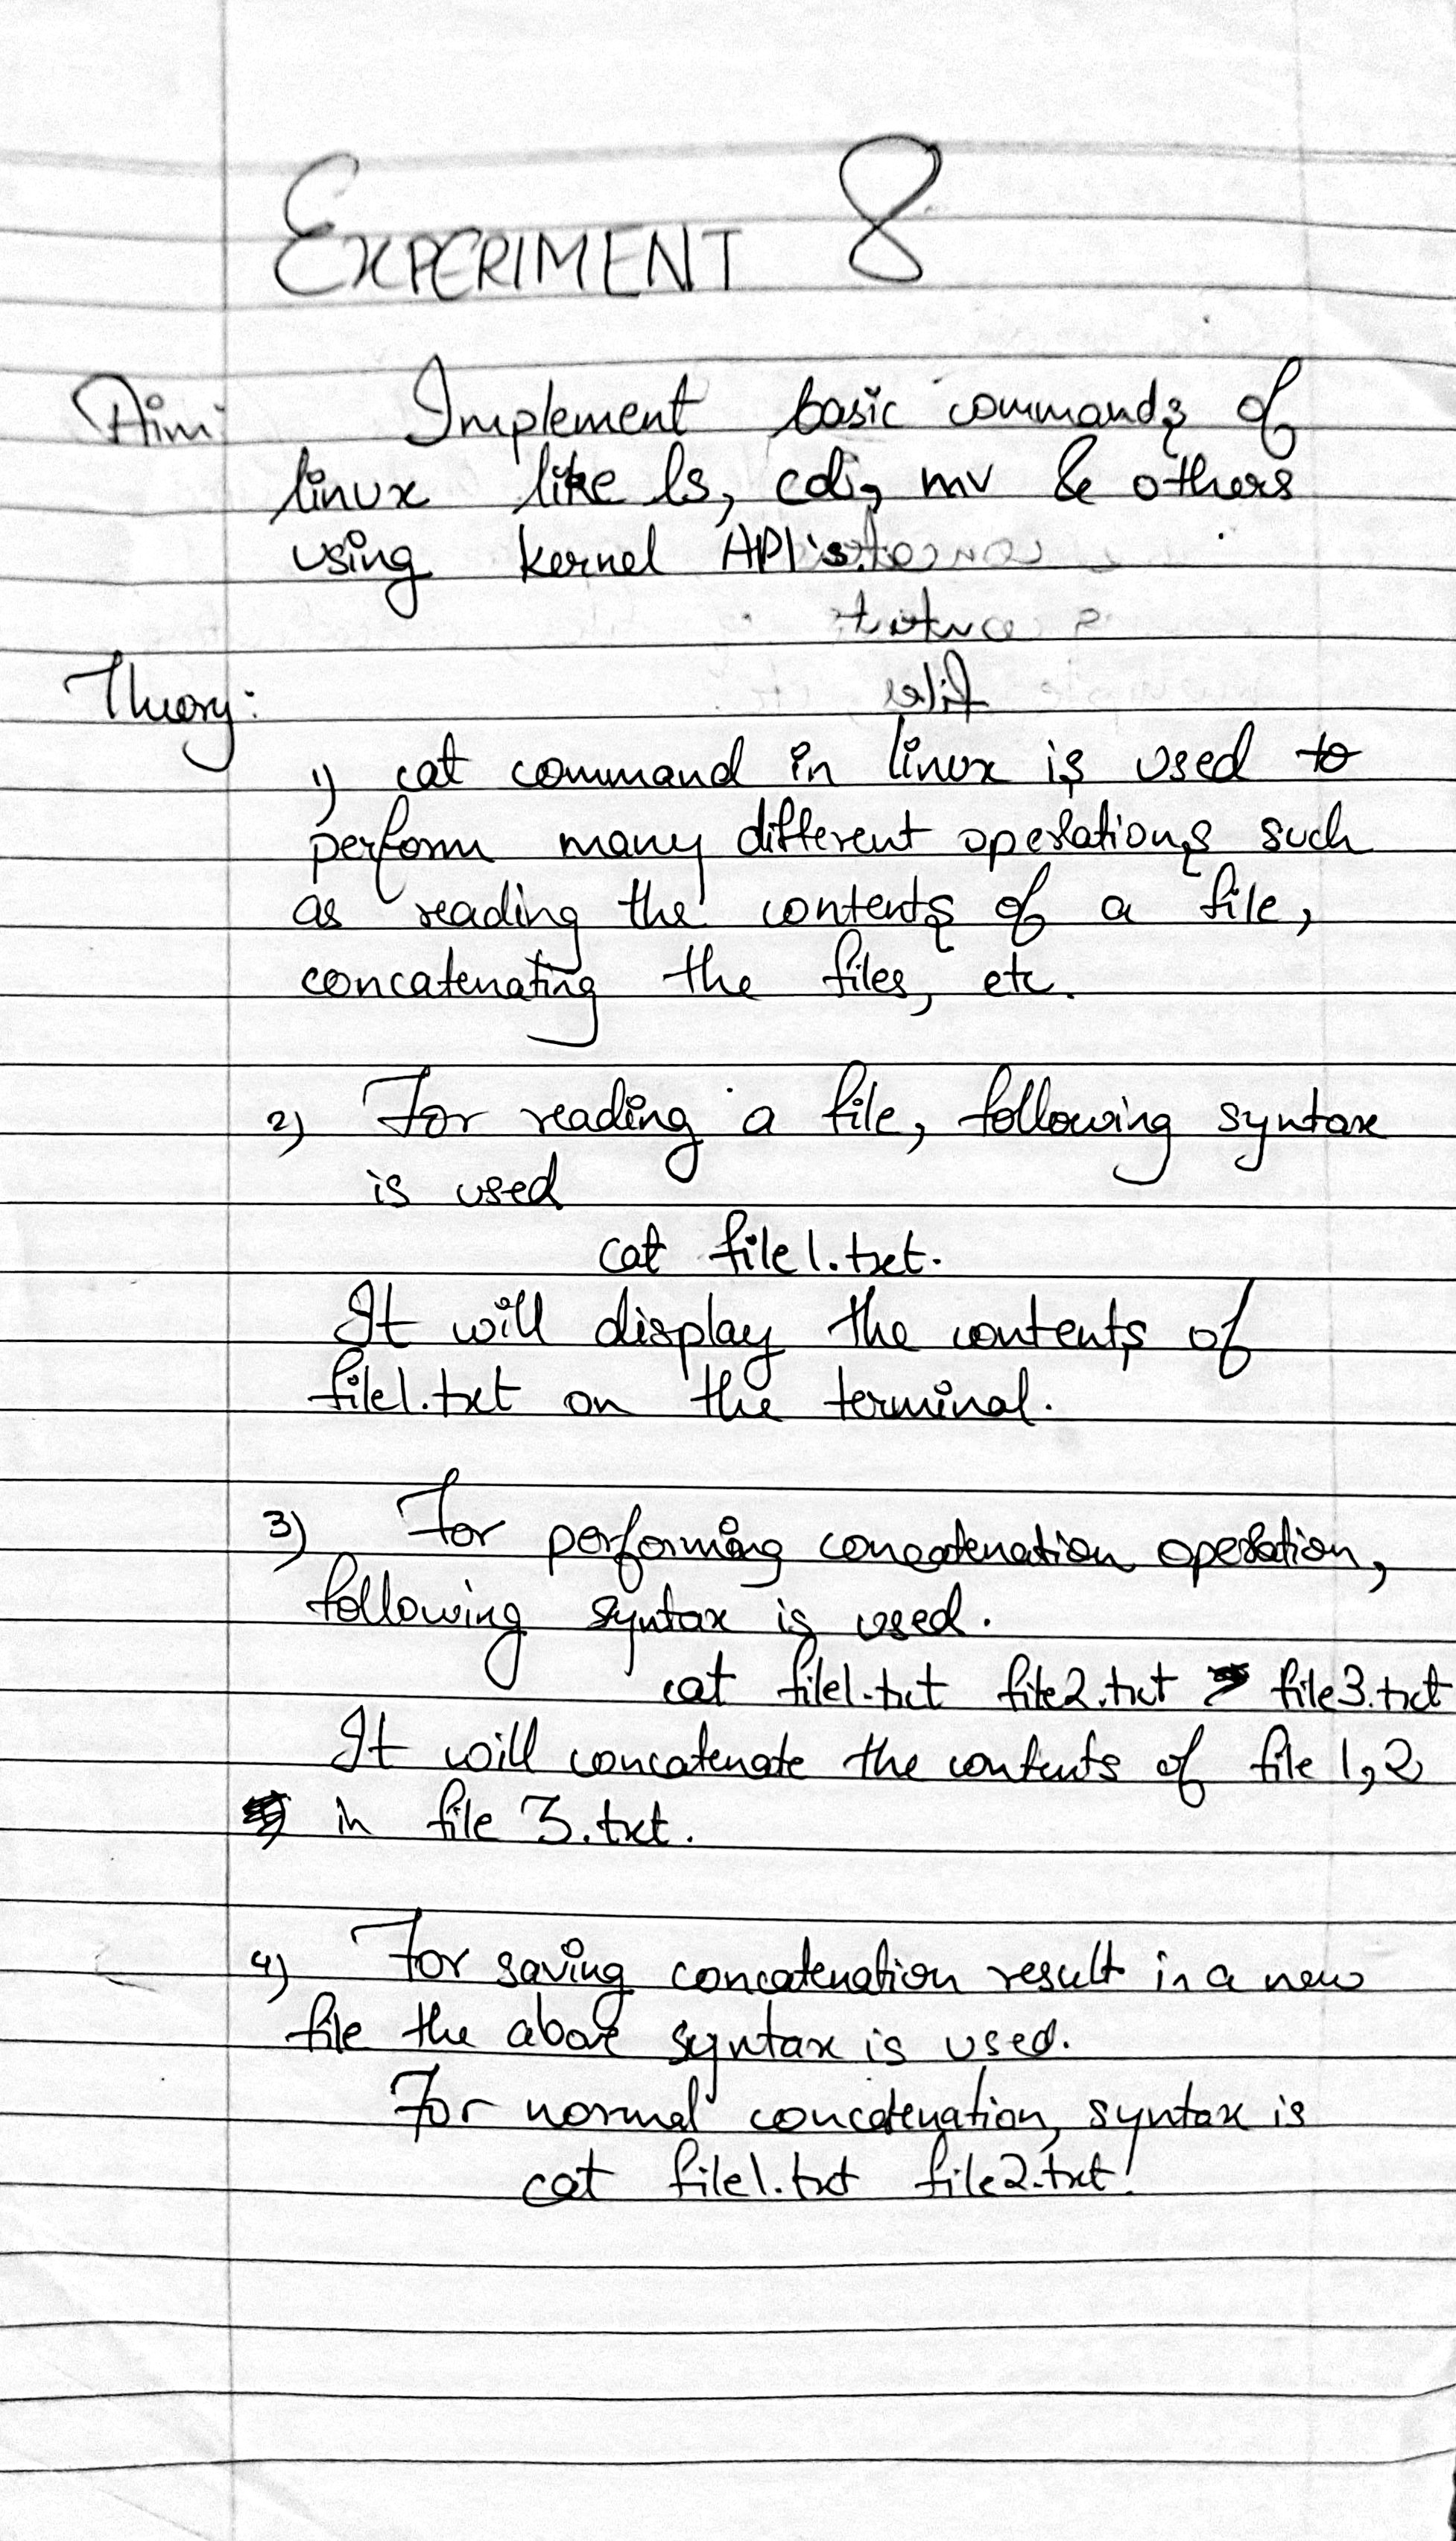 EXPERIMENT 8
Aim: Implement basic commands of
linux like ls, cd, mv & others
using kernel API's.
Theory:
1) cat command in linux is used to
perform many different operations such
as reading the contents of a file,
concatenating the files, etc.
2) For reading a file, following syntax
is used
cat file1.txt.
It will display the contents of
file1.txt on the terminal.
3) For performing concatenation operation,
following syntax is used.
cat file1.txt file2.txt > file3.txt
It will concatenate the contents of file 1,2
in file 3.txt.
4) For saving concatenation result in a new
file the above syntax is used.
For normal concatenation, syntax is
cat file1.txt file2.txt.